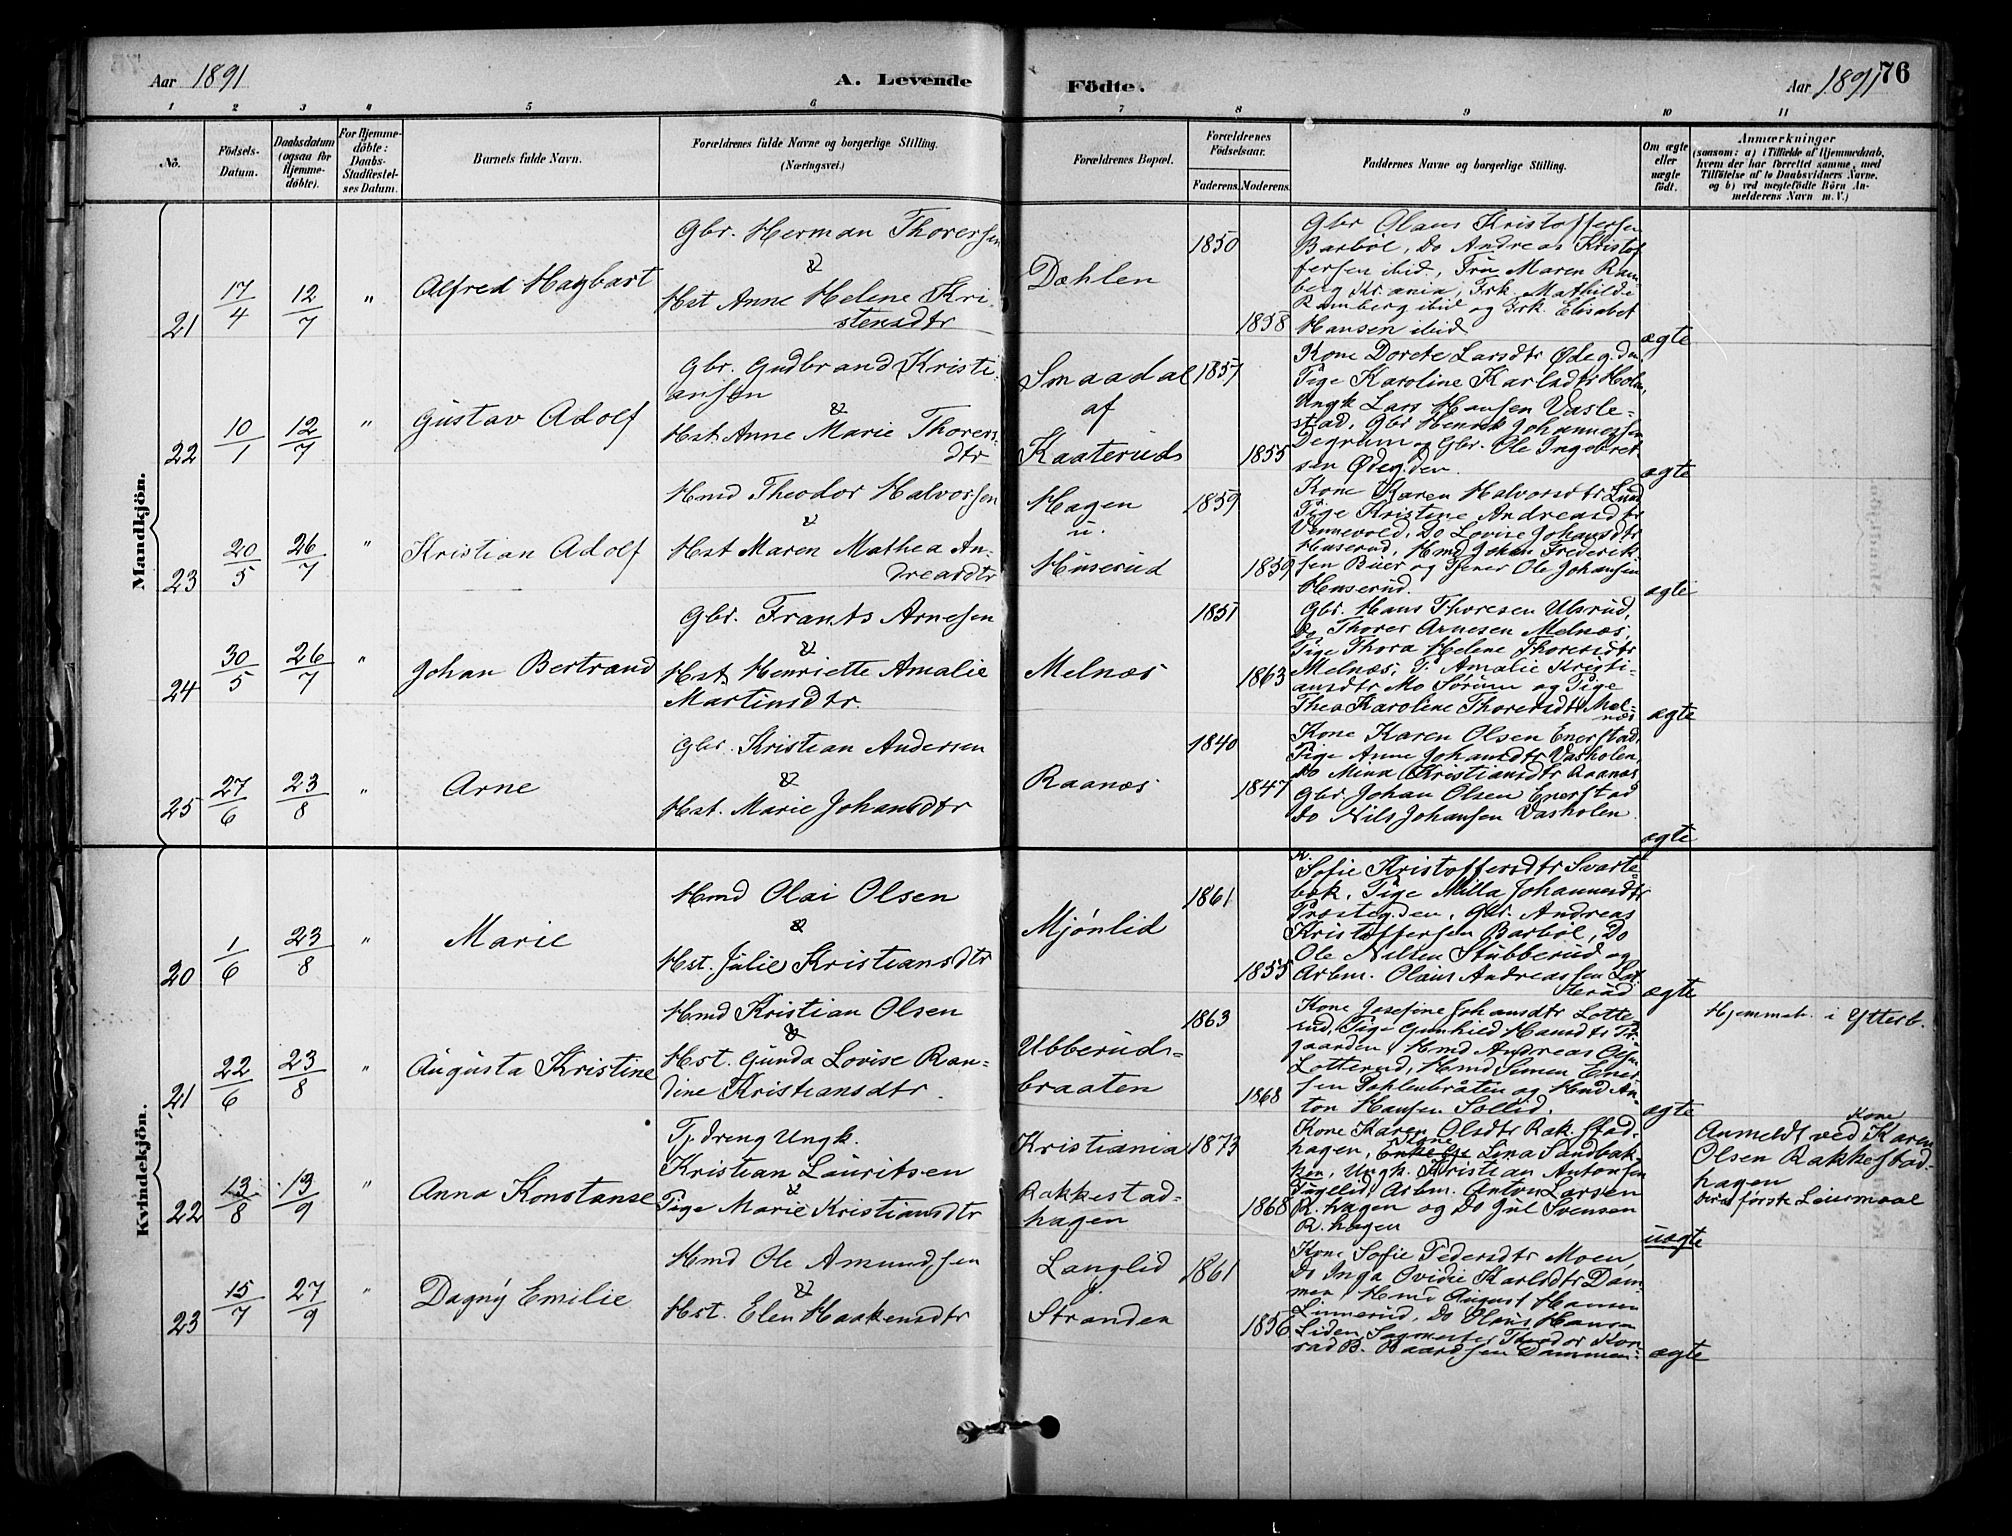 Aar 1891
A. Levende
Födte.
Aar 1891
76
1 2 3 4 5 6 7 8 9 10 11
No.
Födsels-Datum.
Daabsdatum (ogsaa for Hjemmedöbte).
For Hjemmedöbte: Daabs-Stadfæstelses Datum.
Barnets fulde Navn.
Forældrenes fulde Navne og borgerlige Stilling.
(Næringsvei.)
Forældrenes Bopæl.
Forældrenes Födselsaar.
Faderens. Moderens.
Faddernes Navne og borgerlige Stilling.
Om ægte eller uægte födt.
Anmærkninger
(saasom: a) i Tilfælde af Hjemmedaab,
hvem der har forrettet samme, med
Tilföielse af to Daabsvidners Navne.
og b) ved uægtefödte Börn Anmelderens Navn m.V.)
Mandkjön.
21
17/4
12/7
"
Alfred Hagbart
Gbr. Herman Thoresen
&
Hst Anne Helene Kri-
stensdtr
Dæhlen
1850
1858
Gbr Olaus Kristoffersen
Barböl, Do Andreas Kristof
fersen ibid, Fru Maren Ram
berg Kr.ania, Frk. Mathilde
Ramberg ibid og Frk. Elisabet
Hansen ibid
ægte
22
10/1
12/7
"
Gustav Adolf
Gbr. Gudbrand Kristi
ansen
&
Hst Anne Marie Thorers-
dtr
Smaadal
af
Kaaterud
1857
1855
Kone Dorete Larsdtr Ödeg.den
Pige Karoline Karlsdtr Holm,
Ungk Lars Hansen Vasle-
stad, Gbr Henrik Johannessen
Degrum og Gbr. Ole Ingebret
sen Ödeg.den.
ægte
23
20/5
26/7
"
Kristian Adolf
Hmd Theodor Halvorsen
&
Hst Maren Mathea An-
dreasdtr
Hagen
u.
Huserud
1859
1859
Kone Karen Halvorsdtr Lund
Pige Kristine Andreasdtr
Vennevold, Do Lovise Johansdtr
Huserud, Hmd Johan Frederik
sen Buer og Tjener Ole Johansen
Huserud.
ægte
24
30/5
26/7
"
Johan Bertrand
Gbr. Frants Arnesen
&
Hst Henriette Amalie
Martinsdtr
Melnæs
1851
1863
Gbr. Hans Thoresen Ulsrud,
Do Thorer Arnesen Melnæs,
Pige Thora Helene Thorersdtr
Melnæs, P. Amalie Kristi-
ansdtr Mo Sörum og Pige
Thea Karoline Thorersdtr Mel-
næs
ægte
25
27/6
23/8
"
Arne
Gbr. Kristian Andersen
&
Hst. Marie Johansdtr
Raanæs
1840
1847
Kone Karen Olsen Enerstad,
Pige Anne Johansdtr Vasholen,
Do Mina Kristiansdtr Raanæs
Gbr Johan Olsen Enerstad
Do Nils Johansen Vasholen
ægte
Kvindekjön.
20
1/6
23/8
"
Marie
Hmd Olai Olsen
&
Hst. Julie Kristiansdtr
Mjönlid
1861
1855
K.
Sofie Kristoffersdtr Svarte
bæk, Pige Milla Johannesdtr
Prösteg.den, Gbr. Andreas
Kristoffersen Barböl, Do
Ole Nilsen Stubberud og
Arbm. Olaus Andreassen
ægte
21
22/6
23/8
"
Augusta Kristine
Hmd Kristian Olsen
&
Hst. Gunda Lovise Ran-
dine Kristiansdtr.
Ubberuds-
braaten
1863
1868
Kone Josefine Johansdtr Lotte
rud, Pige Gunhild Hansdtr
gaarden, Hmd Andreas Olsen
Lotterud, Hmd Simen Ener
sen Dahlenbråten og Hmd An-
ton Hansen Sollid.
ægte
Hjemmeb. i Ytterb.
22
13/8
13/9
"
Anna Konstanse
Tj.dreng Ungk.
Kristian Lauritsen
&
Pige Marie Kristiansdtr
Kristiania
Rakkestad-
hagen
1873
1868
Kone Karen Olsdtr Rak.stad-
hagen, Kone Lina Sandbak-
ken, Ungk. Kristian Antonsen
Fugelid, Arbm. Anton Larsen
R.hagen og Do Gul. Svensen
R.hagen
uægte
Kone
Anmeldt ved Karen
Olsen Rakkestad-
hagen
Deres förste Leiermaal
23
15/7
27/9
"
Dagny Emilie
Hmd Ole Amundsen
&
Hst. Elen Haakensdtr
Langlid
Stranden
1861
1856
Kone Sofie Pedersdtr Moen,
Do Inga Ovidie Karlsdtr Dam-
men, Hmd August Hansen
Linnerud, Do Olaus Hansen
Liden, Theodor Kon-
rad B. Baardsen Dammen.
ægte